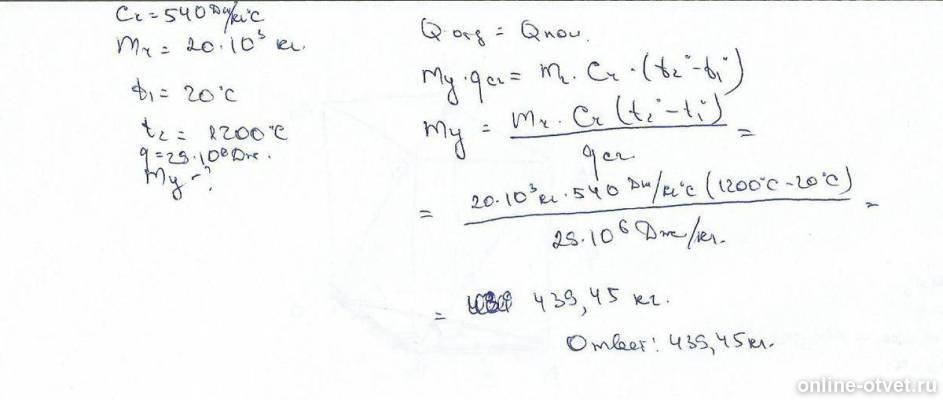 Cг = 540 Дж/кг°C
Mг = 20·10³ кг.
t₁ = 20°C
t₂ = 1200°C
q = 29·10⁶ Дж.
My - ?
Q отд = Q пол.
My · qсг = mг · Cг · (t₂° - t₁°)
My = mг · Cг (t₂° - t₁°) / qсг =
= 20·10³ кг · 540 Дж/кг°C (1200°C - 20°C) / 29·10⁶ Дж/кг. =
= 439,45 кг.
Ответ: 439,45 кг.
online-otvet.ru